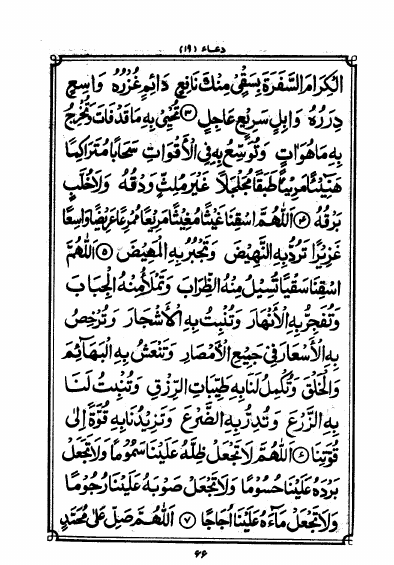 دعاء (١٩)
الْكِرَامَ السَّفَرَةَ بِسَقْيٍ مِنْكَ نَافِعٍ دَائِمٍ غُزْرُهُ وَاسِعٍ
دِرَرُهُ وَابِلٍ سَرِيْعٍ عَاجِلٍ ﴿٣﴾ تُحْيِيْ بِهِ مَا قَدْ فَاتَ وَتُخْرِجُ
بِهِ مَا هُوَ اٰتٍ وَتُوَسِّعُ بِهِ فِي الْأَقْوَاتِ سَحَابًا مُتَرَاكِمًا
هَنِيْئًا مَرِيْئًا طَبَقًا مُجَلْجَلًا غَيْرَ مُلِثٍّ وَدْقُهُ وَلَا خُلَّبٍ
بَرْقُهُ ﴿٤﴾ اَللّٰهُمَّ اسْقِنَا غَيْثًا مُغِيْثًا مَرِيْعًا مُمْرِعًا عَرِيْضًا وَاسِعًا
غَزِيْرًا تَرُدُّ بِهِ النَّهِيْضَ وَتَجْبُرُ بِهِ الْمَهِيْضَ ﴿٥﴾ اَللّٰهُمَّ
اسْقِنَا سَقْيًا تُسِيْلُ مِنْهُ الظِّرَابَ وَتَمْلَأُ مِنْهُ الْجِبَابَ
وَتُفَجِّرُ بِهِ الْأَنْهَارَ وَتُنْبِتُ بِهِ الْأَشْجَارَ وَتُرْخِصُ
بِهِ الْأَسْعَارَ فِيْ جَمِيْعِ الْأَمْصَارِ وَتَنْعَشُ بِهِ الْبَهَائِمَ
وَالْخَلْقَ وَتُكْمِلُ لَنَا بِهِ طَيِّبَاتِ الرِّزْقِ وَتُنْبِتُ لَنَا
بِهِ الزَّرْعَ وَتُدِرُّ بِهِ الضَّرْعَ وَتَزِيْدُنَا بِهِ قُوَّةً اِلٰى
قُوَّتِنَا ﴿٦﴾ اَللّٰهُمَّ لَا تَجْعَلْ ظِلَّهُ عَلَيْنَا سَمُوْمًا وَلَا تَجْعَلْ
بَرْدَهُ عَلَيْنَا حُسُوْمًا وَلَا تَجْعَلْ صَوْبَهُ عَلَيْنَا رُجُوْمًا
وَلَا تَجْعَلْ مَاءَهُ عَلَيْنَا اُجَاجًا ﴿٧﴾ اَللّٰهُمَّ صَلِّ عَلٰى مُحَمَّدٍ
۶۶